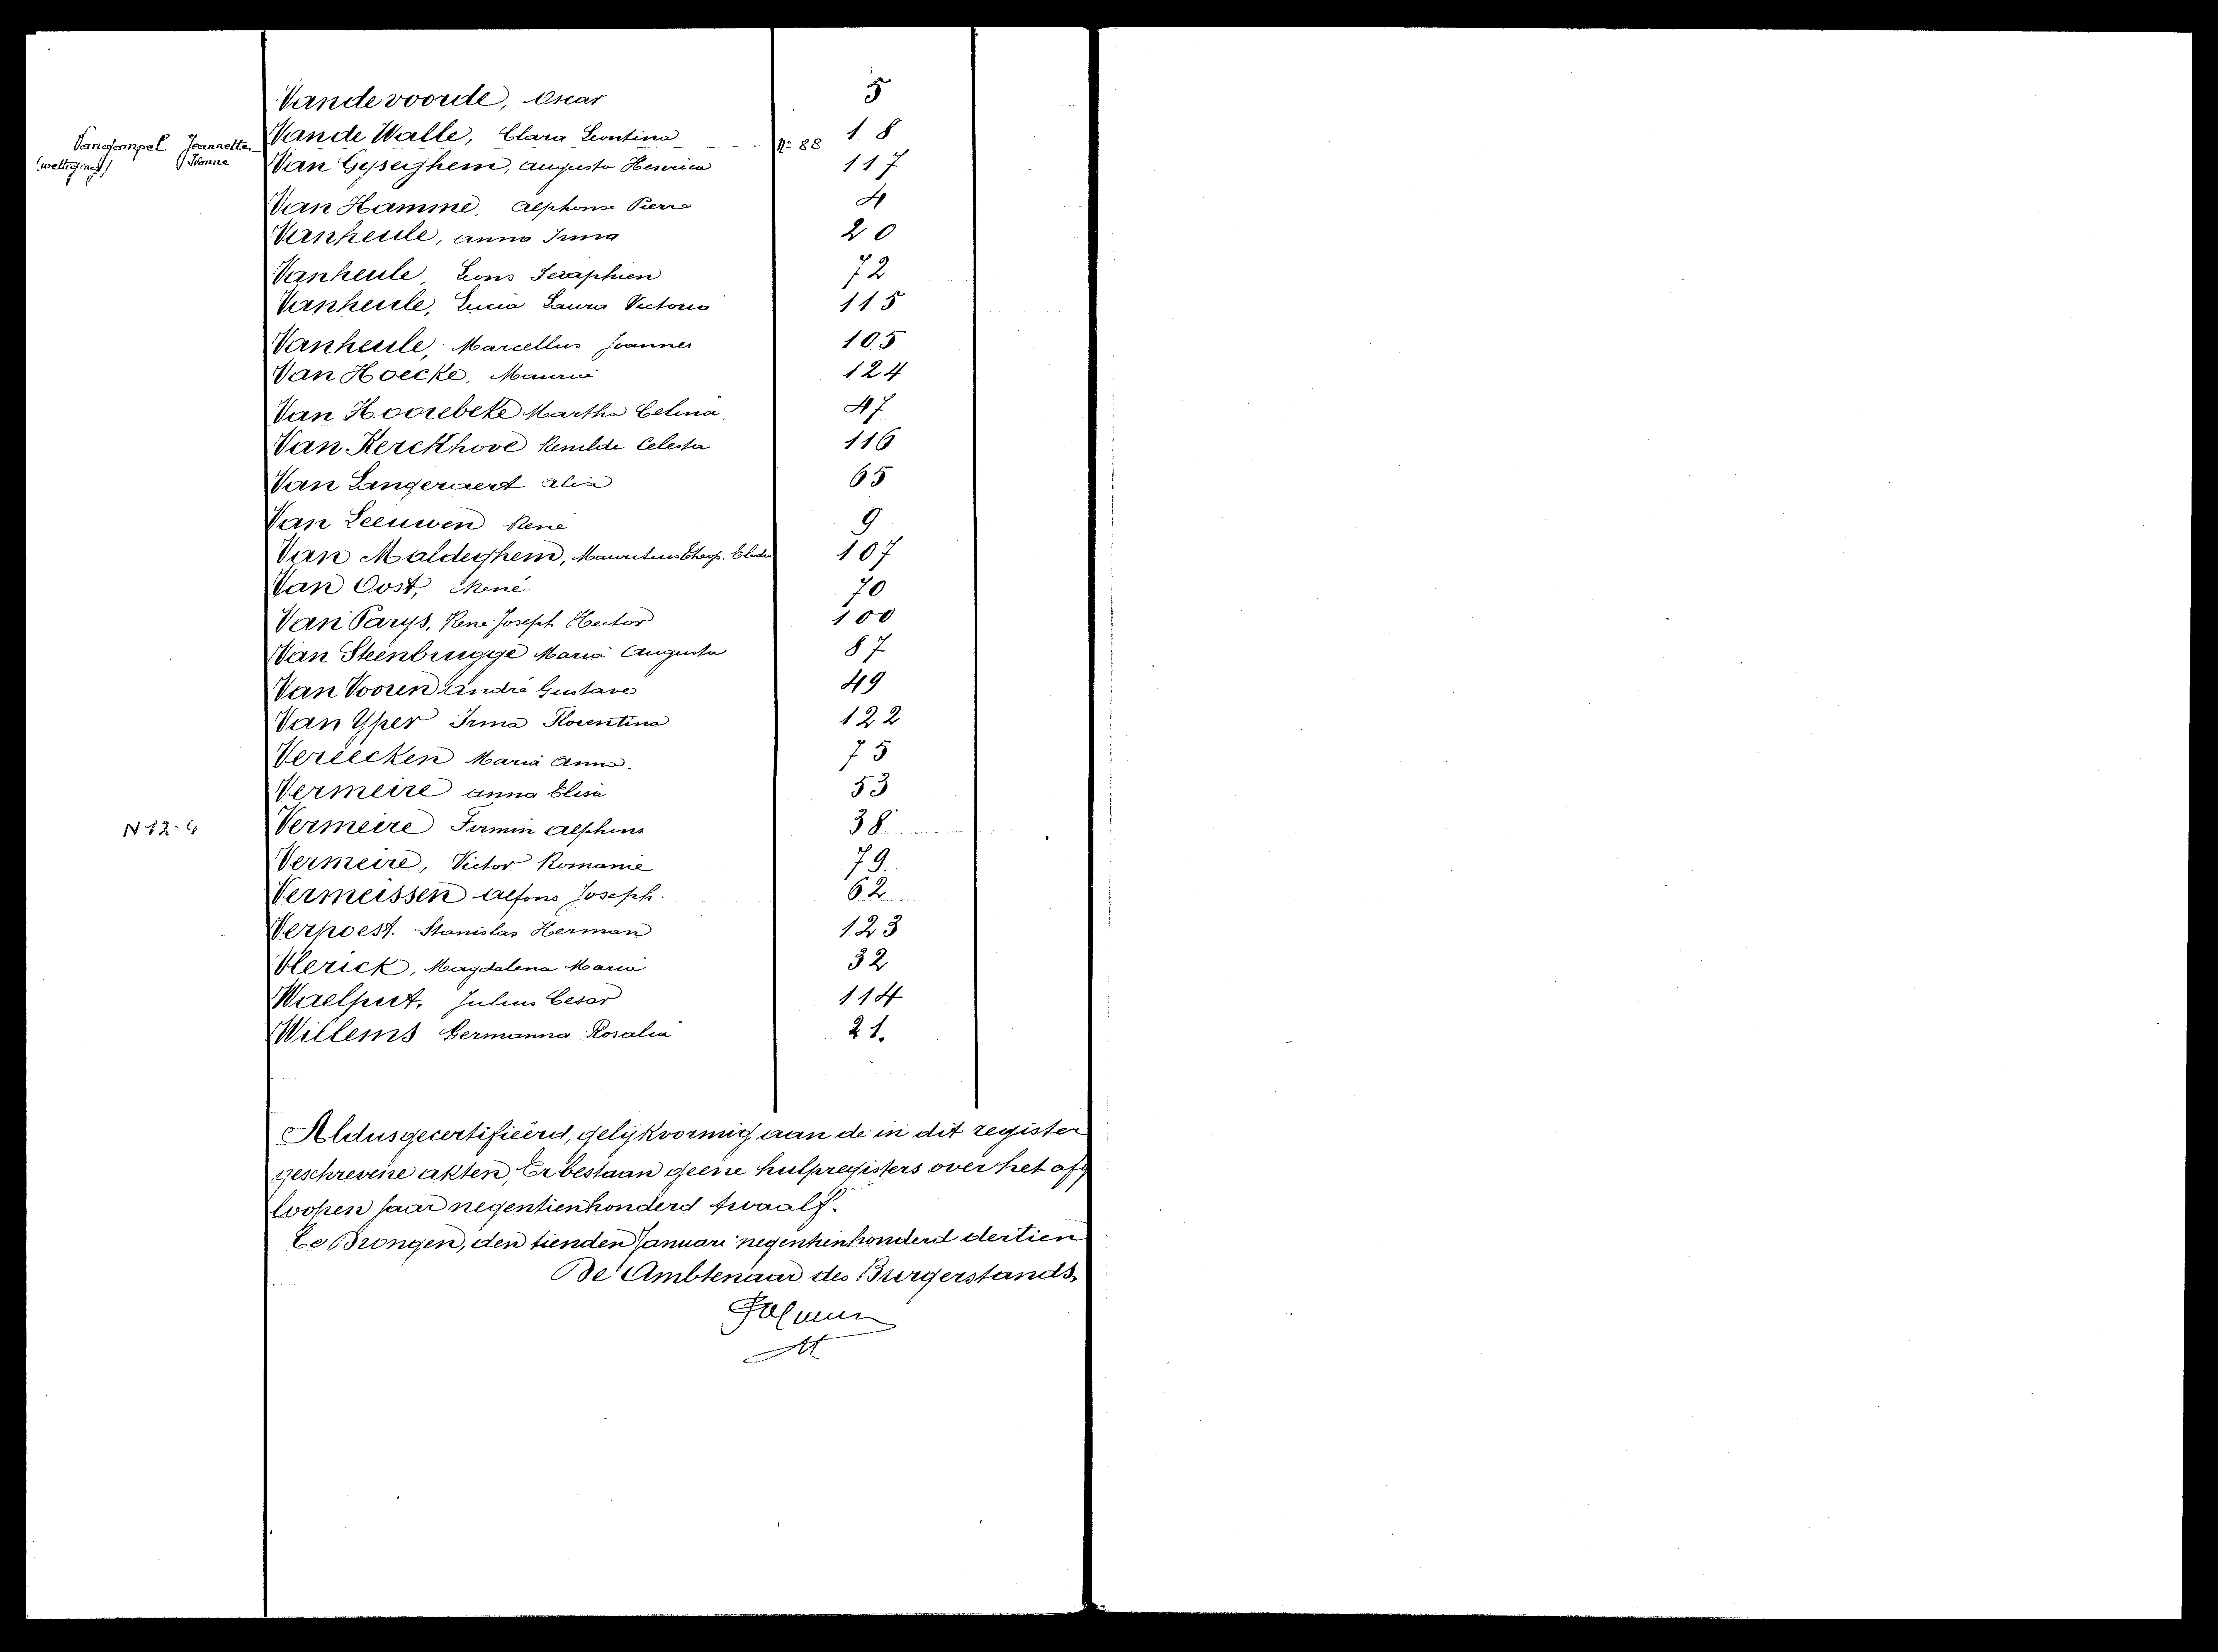 Vandevoorde, Oscar 5
Vande Walle, Clara Leontina 18
Vangompel Jeannette Nº 88
(wettiging) Ivonne
Van Gyseghem, Augusta Henrica 117
Van Hamme, Alphonse Pierre 4
Vanheule, Anna Irma 20
Vanheule, Leons Seraphien 72
Vanheule, Lucia Laura Victoria 115
Vanheule, Marcellus Joannes 105
Van Hoecke, Maurice 124
Van Hoorebeke Martha Celina 47
Van Kerckhove Remilde Celesta 116
Van Langeraert Alia 65
Van Leeuwen René 9
Van Maldeghem, Mauritius 107
Van Oost, René 70
Van Parys, René Joseph Hector 100
Van Steenbrugge Maria Augusta 87
Van Vooren André Gustave 49
Van Yper Irma Florentina 122
Vereecken Maria Anna. 75
Vermeire Anna Elisa 53
N 12-4 Vermeire Firmin Alphons 38
Vermeire, Victor Romanie 79
Vermeissen Alfons Joseph. 62
Verpoest. Stanislas Herman 123
Vlerick, Magdalena Maria 32
Waelput, Julius Cesar 114
Willems Germanna Rosalia 21.
Aldus gecertifieërd, gelijkvormig aan de in dit register
geschrevene akten, Er bestaan geene hulpregisters over het afg
loopen jaar negentienhonderd twaalf.
Te Drongen, den tienden Januari negentienhonderd dertien
De Ambtenaar des Burgerstands,